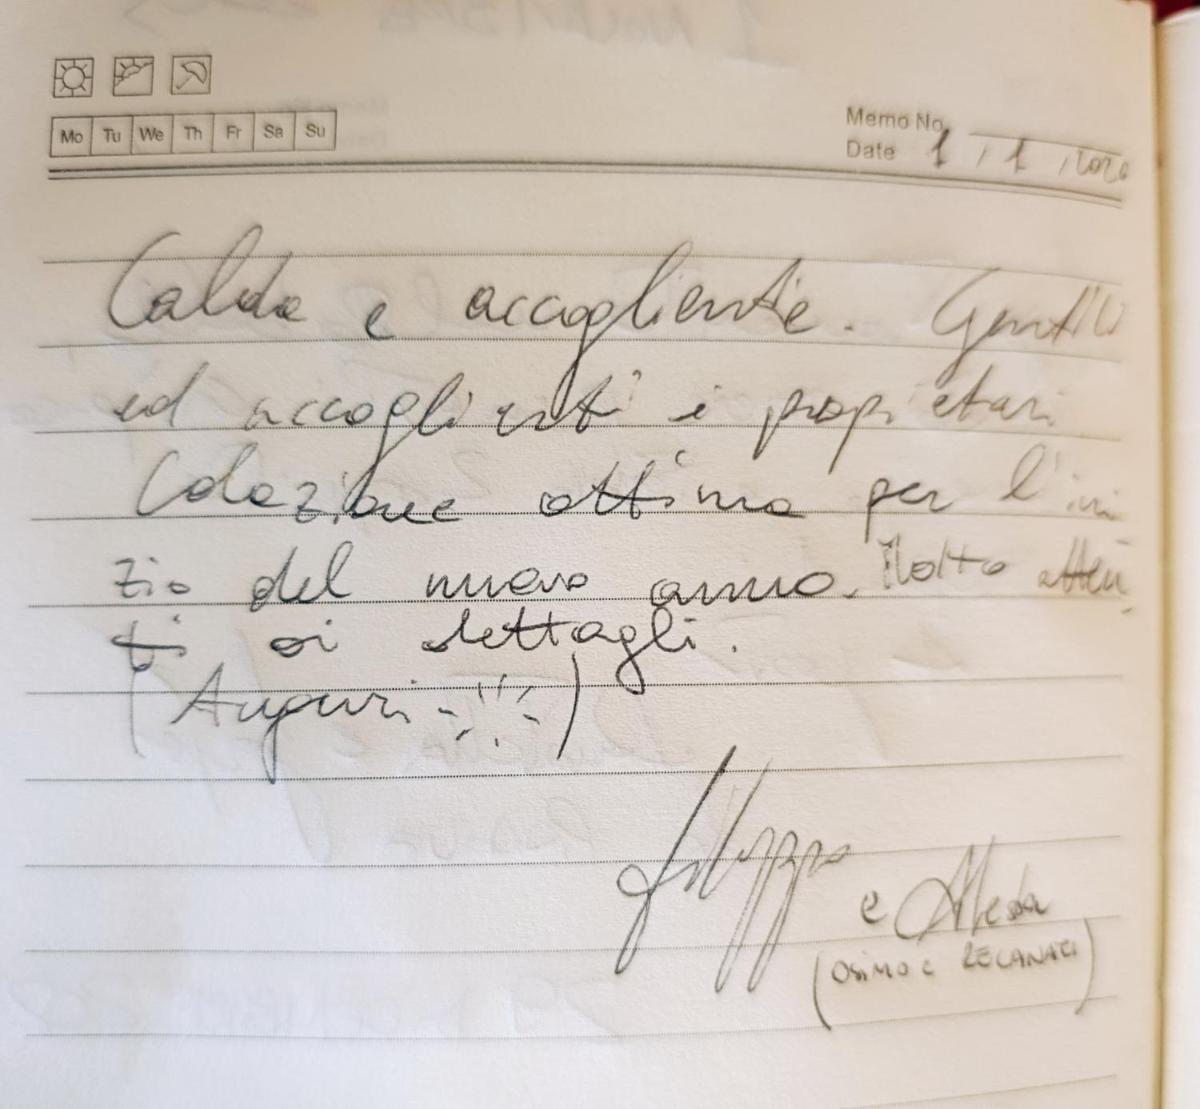 Mo Tu We Th Fr Sa Su
Memo No.
Date 1 / 1 / 2020
Calda e accogliente. Gentili
ed accoglienti i proprietari
Colazione ottima per l'ini
zio del nuovo anno. Molto atten
ti ai dettagli.
(Auguri)
Filippo
e
(OSIMO E RECANATI)